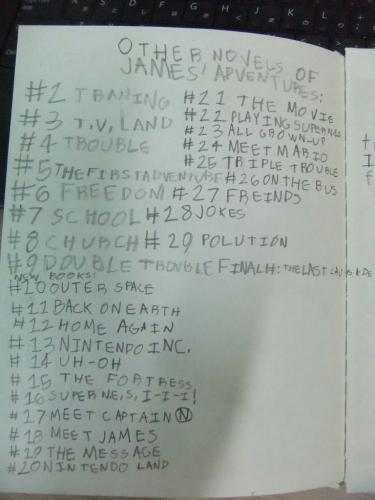 OTHER NOVELS OF
JAMES' ADVENTURES:
#2 TRANING
#3 T.V, LAND
#4 TROUBLE
#5 THE FIRST ADVENTURE
#6 FREEDOM
#7 SCHOOL
#8 CHURCH
#9 DOUBLE TROUBLE
NEW BOOKS:
#10 OUTER SPACE
#11 BACK ON EARTH
#12 HOME AGAIN
#13 NINTENDO INC.
#14 UH-OH
#15 THE FORTRESS
#16 SUPER NE,S, I-I-I!
#17 MEET CAPTAIN N
#18 MEET JAMES
#19 THE MESSAGE
#20 NINTENDO LAND
#21 THE MOVIE
#22 PLAYING SUPER NES
#23 ALL GROWN-UP
#24 MEET MARIO
#25 TRIPLE TROUBLE
#26 ON THE BUS
#27 FREINDS
#28 JOKES
#29 POLUTION
FINAL#: THE LAST